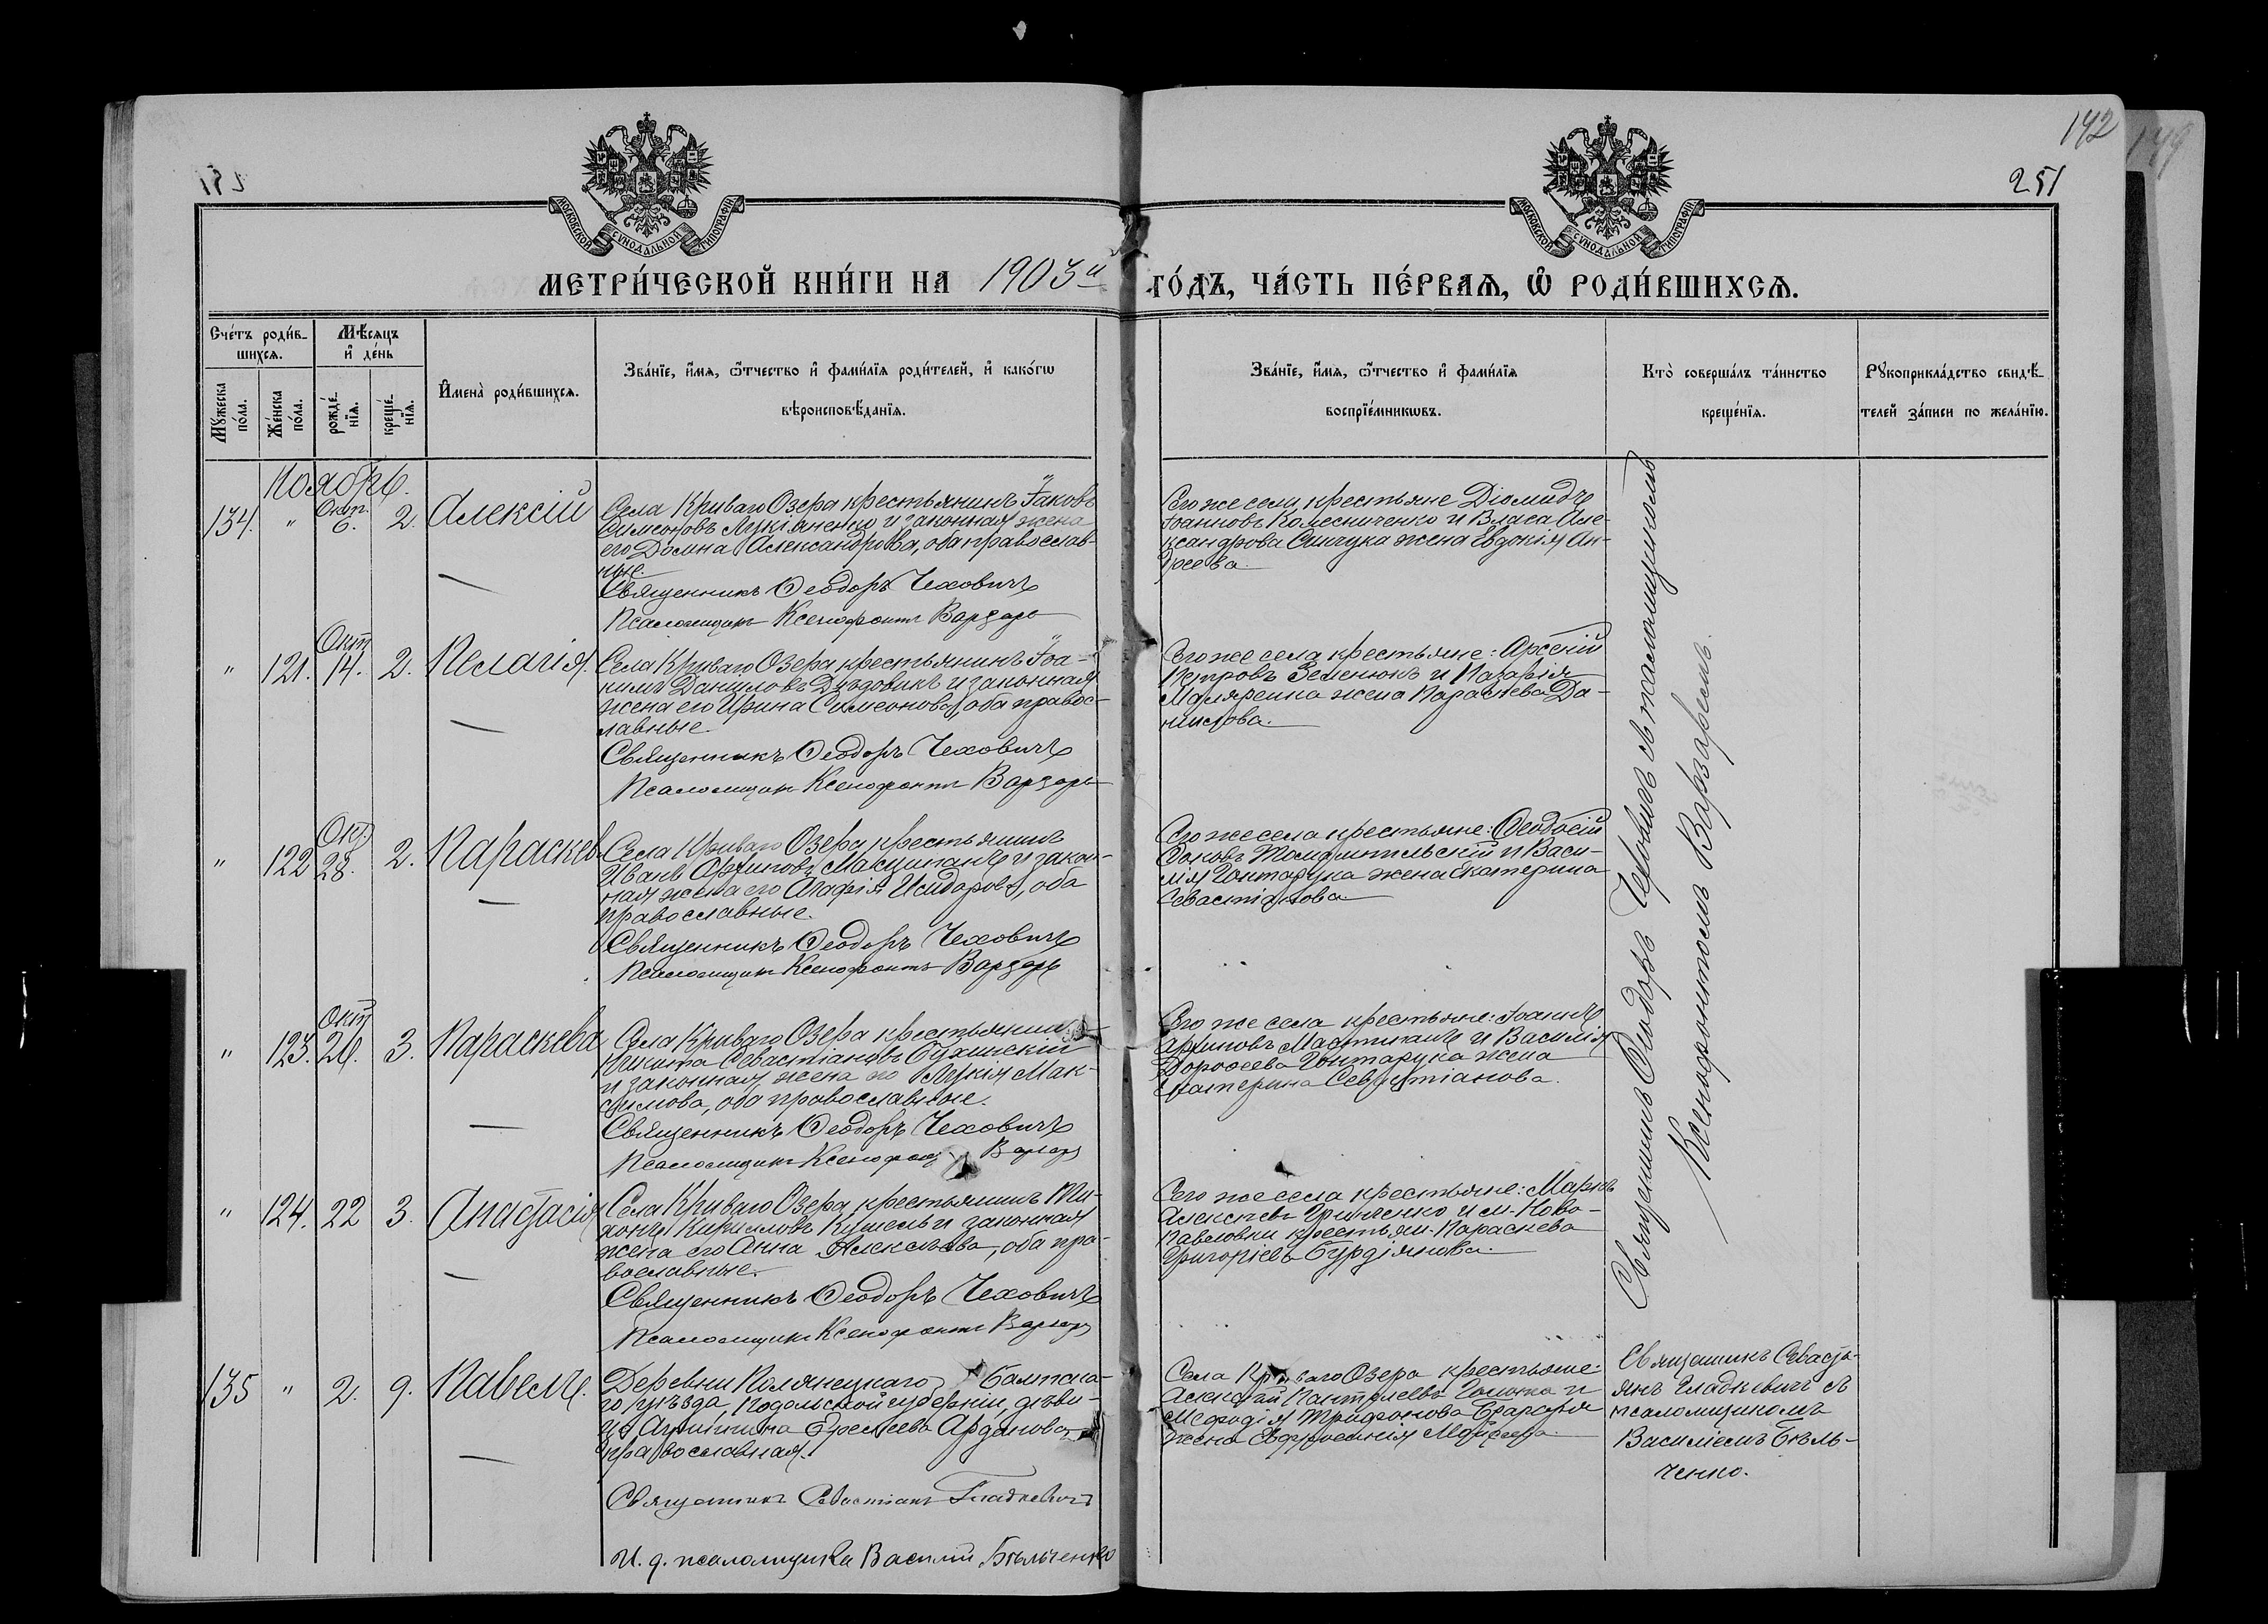 142
149
251
МОСКОВСКОЙ СѴНОДАЛЬНОЙ ТИПОГРАФІИ
МОСКОВСКОЙ СѴНОДАЛЬНОЙ ТИПОГРАФІИ
МЕТРИ́ЧЕСКОЙ КНИ́ГИ НА 1903й ГО́ДЪ, ЧА́СТЬ ПЕ́РВАѦ, Ѽ РОДИ́ВШИХСѦ.
Сче́тъ роди́в-
шихсѧ.
Мꙋжеска по́ла.
Же́нска по́ла.
Мѣ́сяцъ
и҆ де́нь
рожде́-
нїѧ.
креще́-
нїѧ.
И҆мена̀ роди́вшихсѧ.
Зва́нїе, и҆́мѧ, ѻ҆́тчество и҆ фами́лїѧ роди́телей, и҆ како́гѡ
вѣроисповѣ́данїѧ.
Зва́нїе, и҆́мѧ, ѻ҆́тчество и҆ фами́лїѧ
воспрїе́мникѡвъ.
Кто̀ соверша́лъ та́инство
креще́нїѧ.
Рꙋкоприкла́дство свидѣ́-
телей за́писи по жела́нїю.
Ноябрь.
134. " Окт. 6. 2. Алексій
Села Криваго Озера крестьянинъ Іаковъ
Симеоновъ Лукіяненко и законная жена
его Домна Александрова, оба православ-
ные.
Священникъ Ѳеодоръ Чеховичъ
Псаломщикъ Ксенофонтъ Варзарь
Того же села крестьяне Діомидъ
Іоанновъ Колесниченко и Власа Але-
ксандрова жена Евдокія Ан-
дреева.
Священникъ Ѳеодоръ Чеховичъ съ псаломщикомъ
Ксенофонтомъ Варзаремъ.
" 121. Окт. 14. 2. Пелагія.
Села Криваго Озера крестьянинъ Іоа-
кимъ Даниловъ Дѣдовикъ и законная
жена его Ирина Симеонова, оба правос-
лавные.
Священникъ Ѳеодоръ Чеховичъ
Псаломщикъ Ксенофонтъ Варзарь
Того же села крестьяне: Арсеній
Петровъ Зеленюкъ и Назарія
жена Параскева Да-
нилова.
" 122 Окт. 28. 2. Параскев
Села Криваго Озера крестьянинъ
Иванъ Архиповъ и закон-
ная жена его Агафія Исидорова, оба
православные.
Священникъ Ѳеодоръ Чеховичъ
Псаломщикъ Ксенофонтъ Варзарь
Того же села крестьяне: Ѳеодосій
и Васи-
лія Гонтарука жена Екатерина
Севастіанова.
" 123. Окт. 26. 3. Параскева
Села Криваго Озера крестьянинъ
Никита Севастіановъ Бужинскій
и законная жена его Лукія Мак-
симова, оба православные.
Священникъ Ѳеодоръ Чеховичъ
Псаломщикъ
Того же села крестьяне: Іоаннъ
Архиповъ и Василія
Дороѳеева Гонтарука жена
Екатерина Севастіанова.
" 124. 22 3. Анастасія
Села Криваго Озера крестьянинъ Ти-
хонъ Кирилловъ и законная
жена его Анна Алексѣева, оба пра-
вославные.
Священникъ Ѳеодоръ Чеховичъ
Псаломщикъ Ксенофонтъ Варзарь
Того же села крестьяне: Маркъ
Алексѣевъ Гринченко и м. Ново-
павловки крестьян. Параскева
Григоріева Бурдіянова.
135 " 2. 9. Павелъ.
Деревни Балтска-
го уѣзда, Подольской губерніи, дѣви-
ца Агриппина Ардамова,
православная.
Священникъ Севастіанъ Гладкевичъ
И. д. псаломщика Василій Бѣльченко
Села Криваго Озера крестьяне:
Алексѣй Пантелеевъ и
Меѳодія Трифонова
жена Евфросинія
Священникъ Севасті-
янъ Гладкевичъ съ
псаломщикомъ
Василіемъ Бѣль-
ченко.